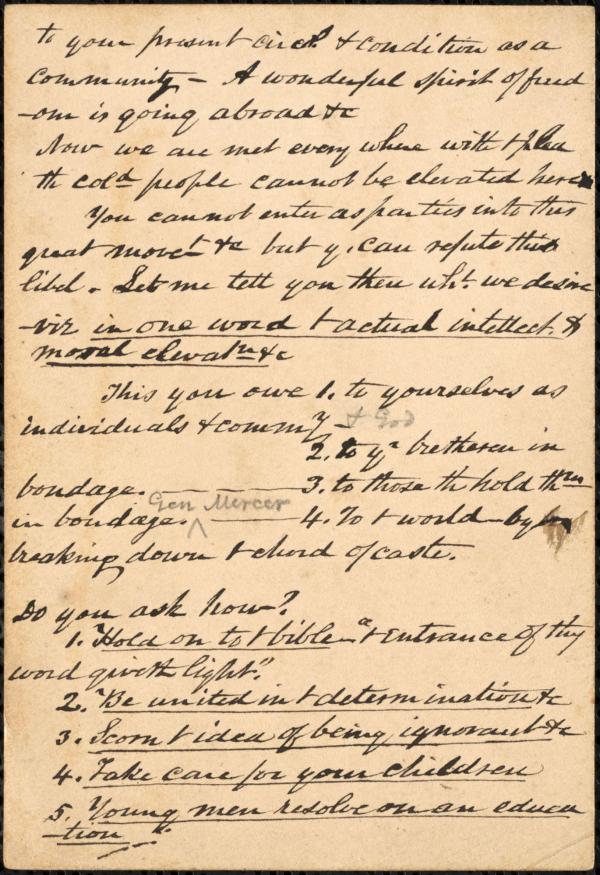 to your present circ.s & condition as a
community - A wonderful spirit of freed
-om is going abroad &c
Now we are met every where with t plea
th cold people cannot be elevated here
You cannot enter as parties into this
great movet &c but y. can refute this
libel - Let me tell you then wht we desire
-viz in one word t actual intellect. &
moral elevatn &c
This you owe 1. to yourselves as
individuals & commy & God
2. to yr bretheren in
bondage. 3. to those th hold thm
in bondage. Gen Mercer 4. To t world - by
breaking down t chord of caste.
Do you ask how?
1. Hold on to t bible - "t entrance of thy
word giveth light".
2. Be united in t determination &c
3. Scorn t idea of being ignorant &c
4. Take care for your children
5. Young men resolve on an educa
-tion